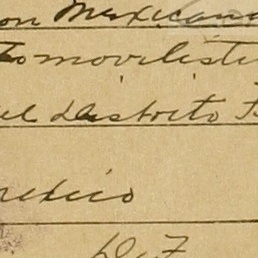 on Mexicana
tomovilist
el Distrito F
mexico
D. F.